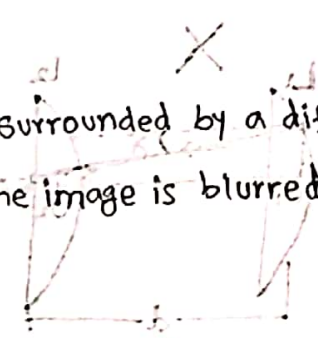 surrounded by a
image is blurred